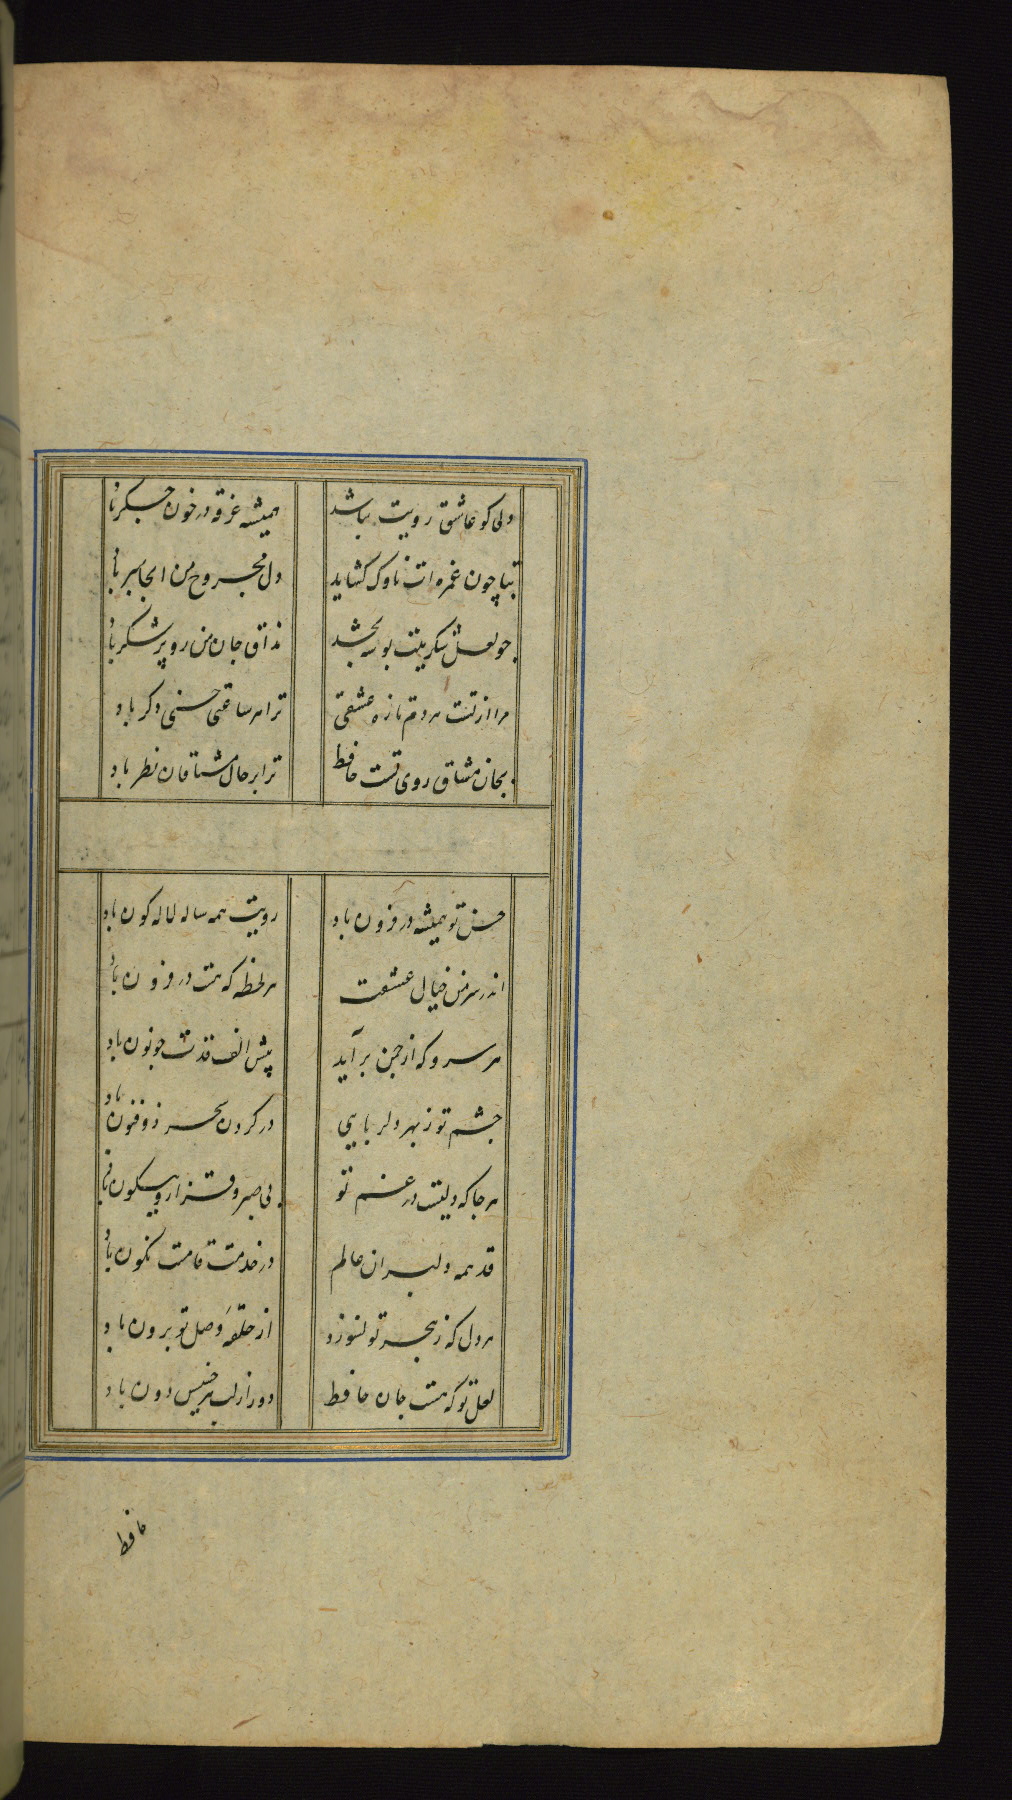 دلی کو عاشق رویت نباشد همیشه غرقه در خون جکر باد
بتا چون غمزه ات ناوک کشاید دل مجروح من انجا سپر باد
جو لعل شکرینت بوسه بخشد مذاق جان من رو پر شکر باد
مرا از تست هر دم تازه عشقی ترا هر ساعتی حسنی دکر باد
بجان مشتاق روی تست حافظ ترا بر حال مشتاقان نظر باد
حسن تو همیشه در فزون باد رویت همه ساله لاله کون باد
اندر سر من خیال عشقت هر لحظه که هست در فزون باد
هر سرو که از جمن بر آید پیش الف قدت جو نون باد
جشم تو ز بهر دلربایی در کردن سحر ذو فنون باد
هر جا که دلیست در غم تو بی صبر و قرار و بی سکون باد
قد همه دلبران عالم در خدمت قامت نکون باد
هر دل که ز هجر تو نسوزد از حلقه وصل تو برون باد
لعل تو که هست جان حافظ دور از لب هر خسیس دون باد
حافظ